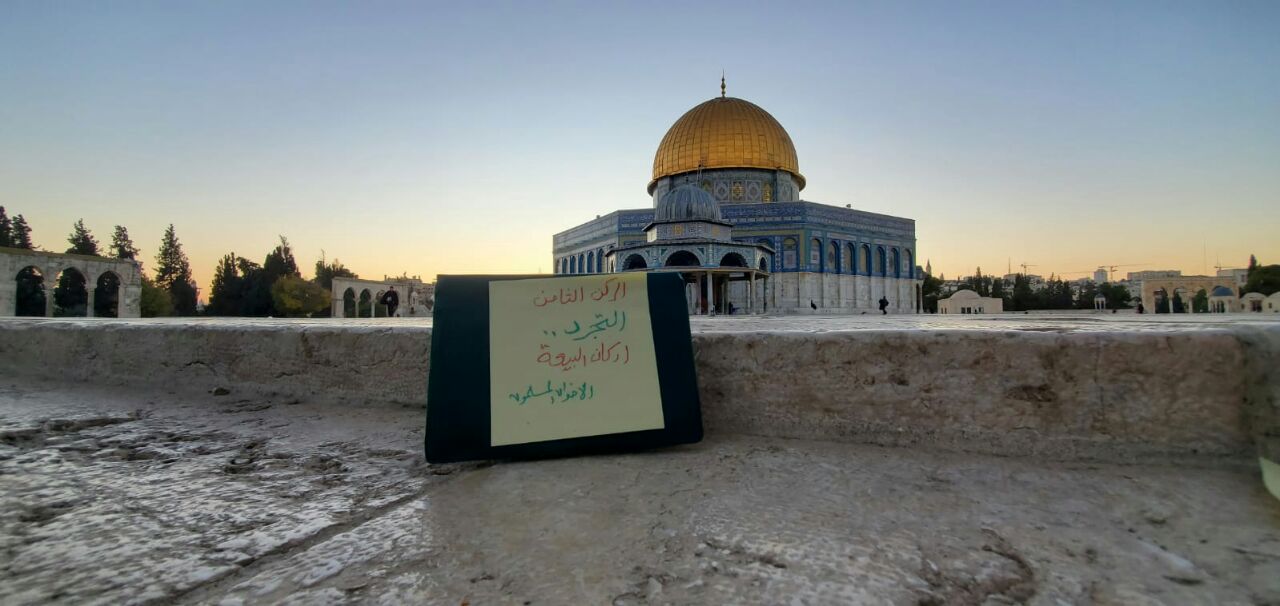 الركن الثامن
التجرد ..
اركان البيعة
الاخوان المسلمون